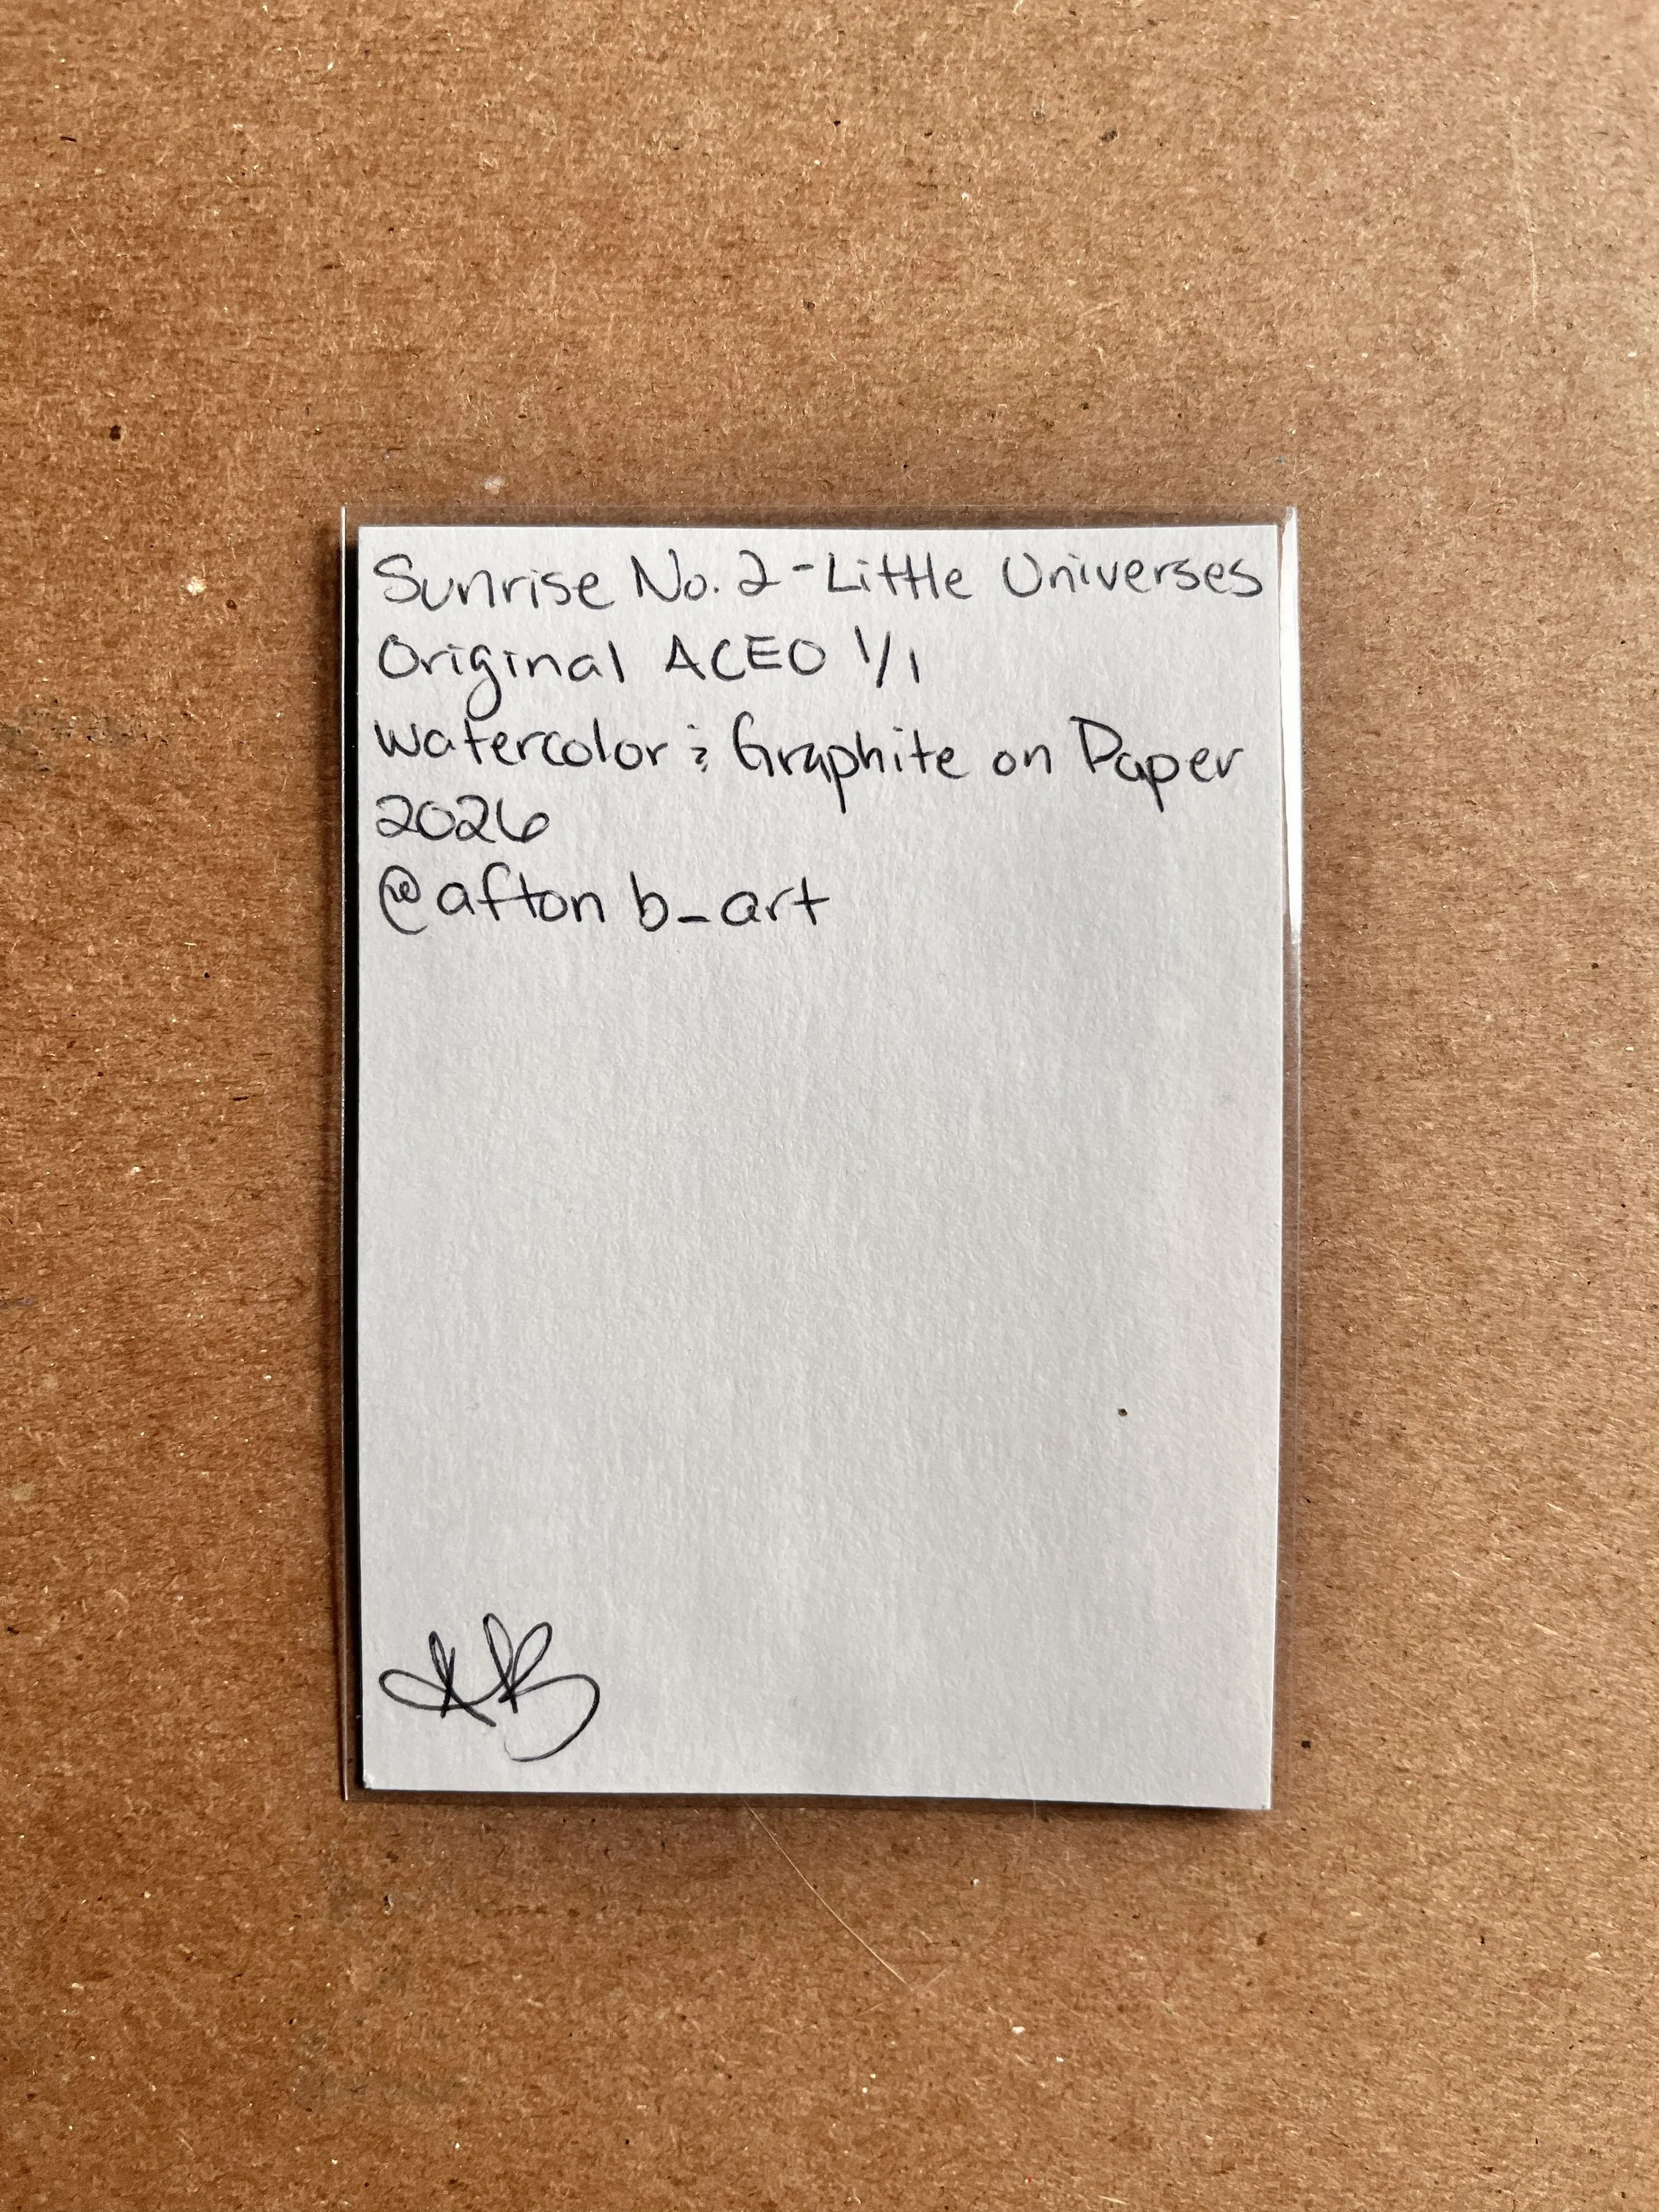 Sunrise No. 2 - Little Universes
Original ACEO 1/1
Watercolor & Graphite on Paper
2026
@aftonb_art
AB